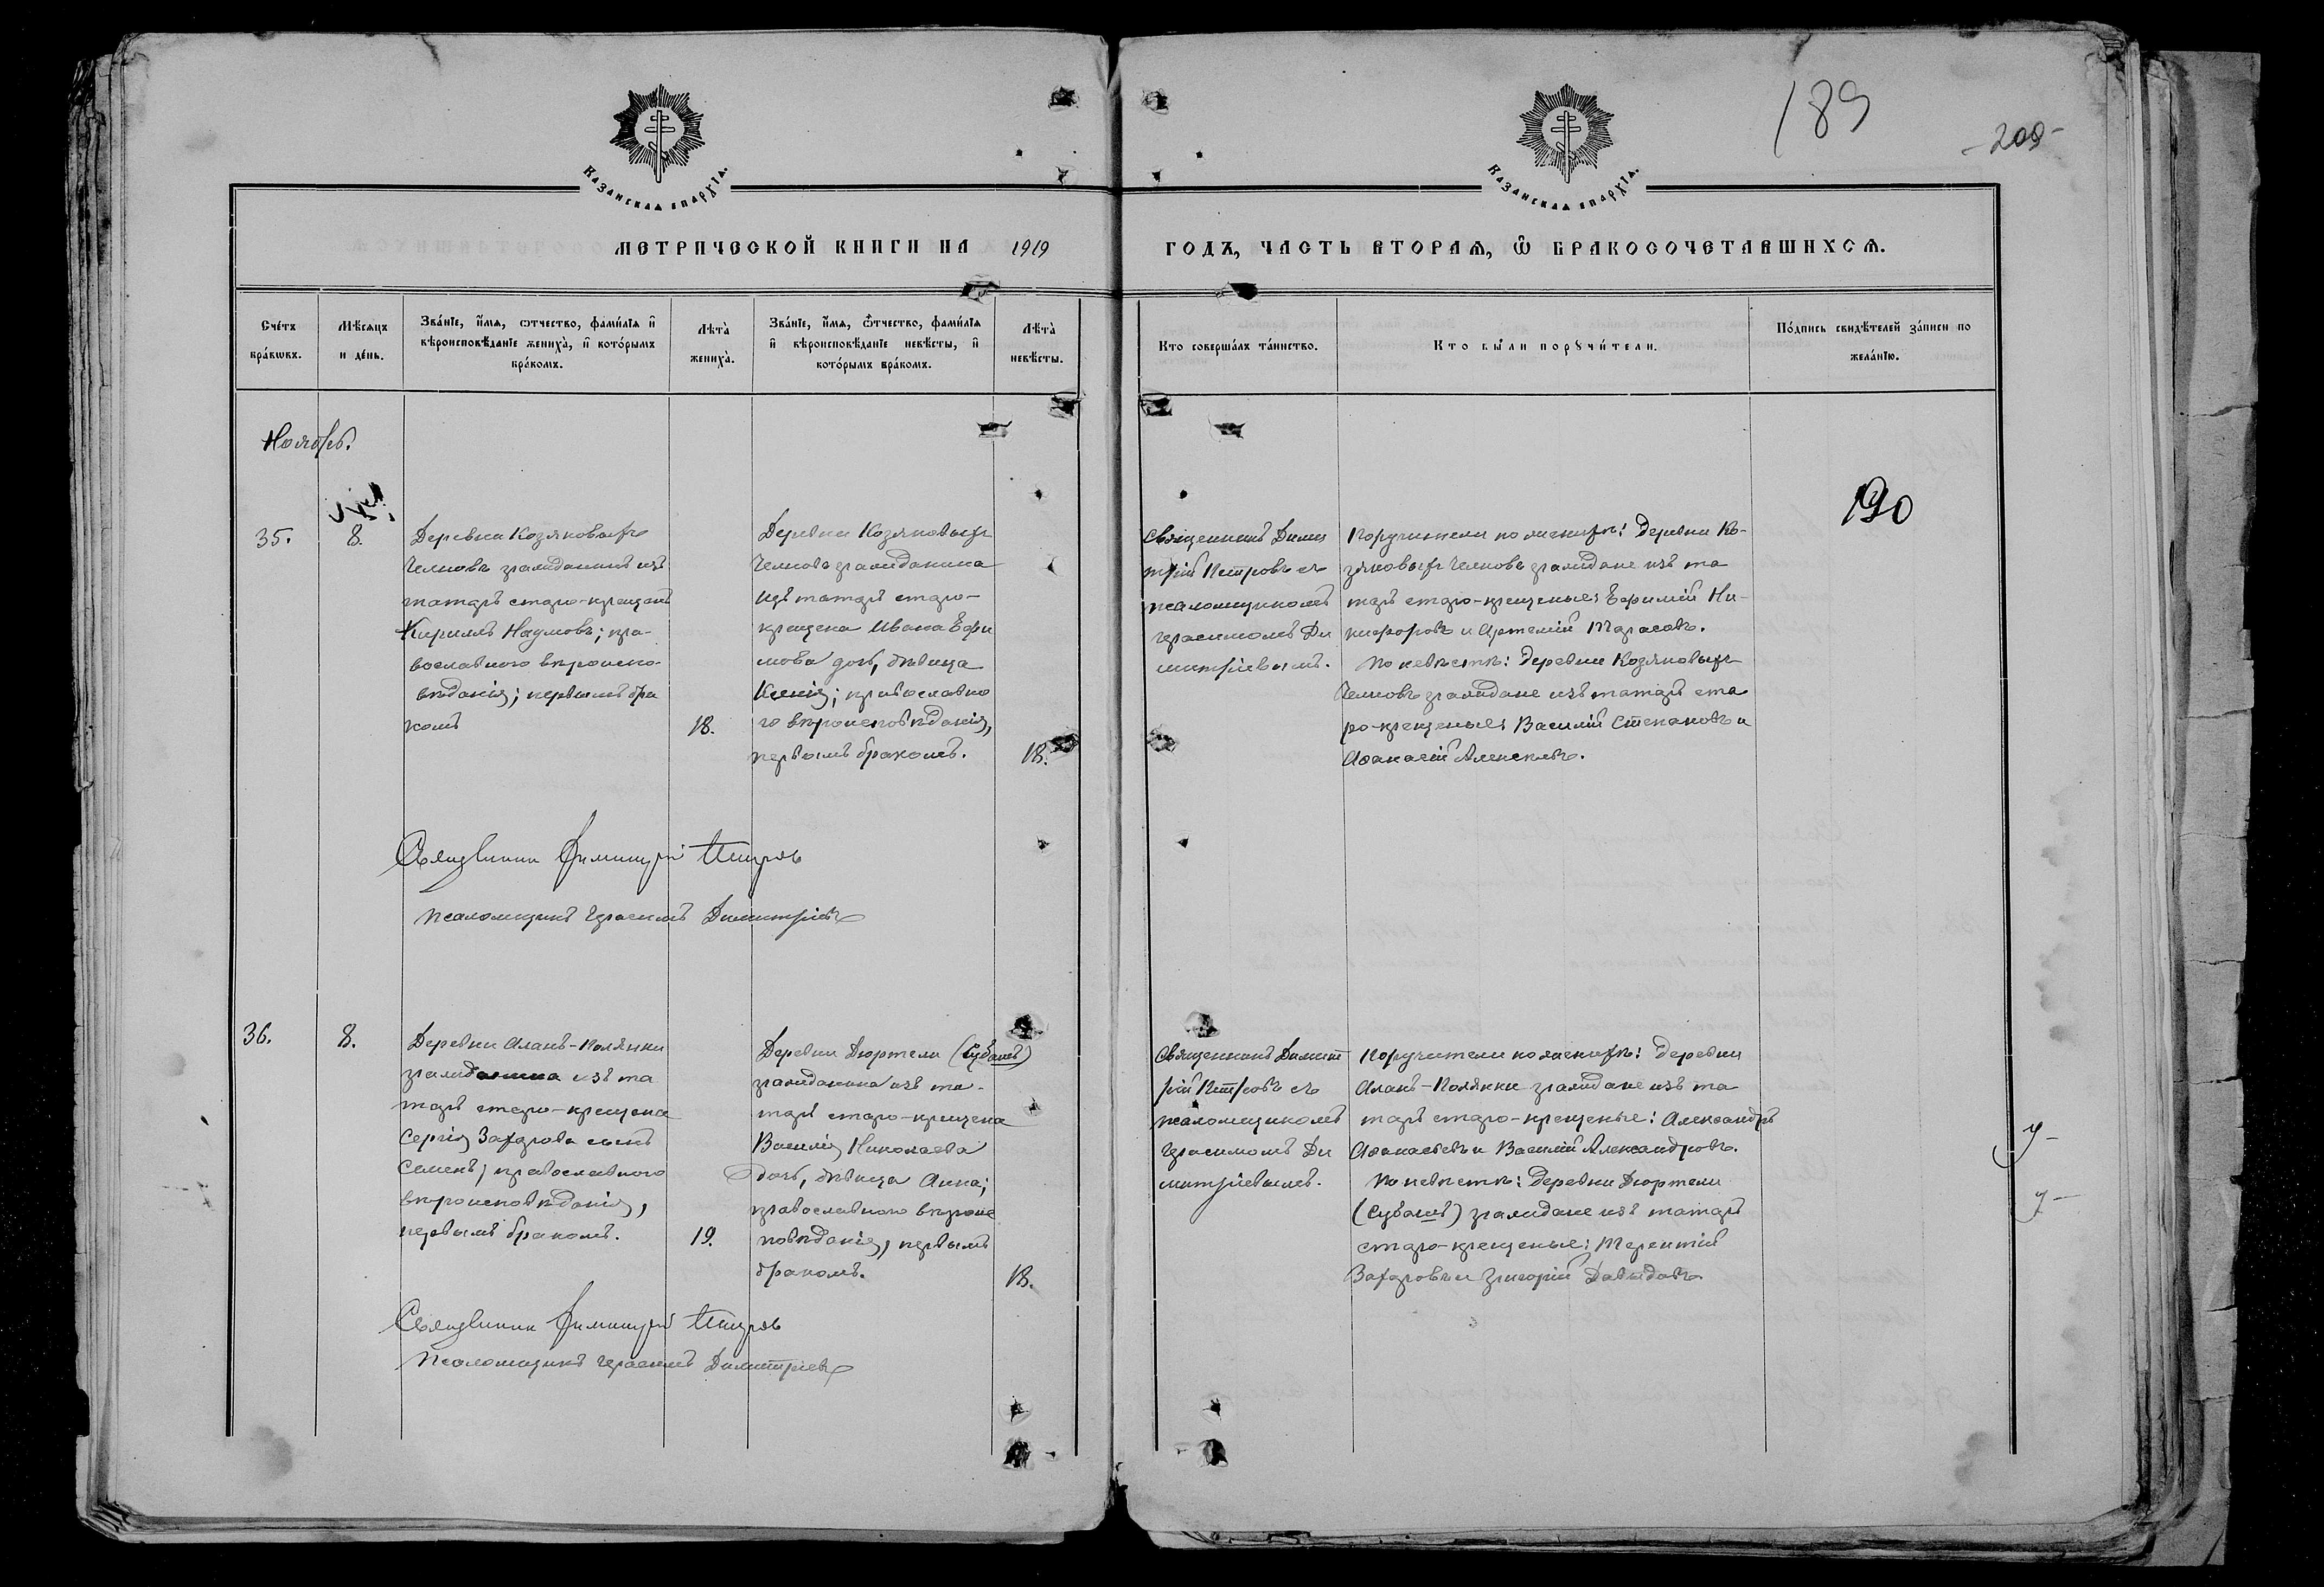 189
-209-
Казанская епархїа.
Казанская епархїа.
МЕТРИЧЕСКОЙ КНИГИ НА 1919
ГОДЪ, ЧАСТЬ ВТОРАѦ, Ѽ БРАКОСОЧЕТАВШИХСѦ.
Сче́тъ бра́кѡвъ.
Мѣ́сяцъ и де́нь.
Зва́нїе, и́мя, ѻтчество, фами́лїя и вѣроисповѣ́данїе жениха̀, и кото́рымъ бра́комъ.
Лѣта̀ жениха̀.
Зва́нїе, и́мя, ѻтчество, фами́лїя и вѣроисповѣ́данїе невѣ́сты, и кото́рымъ бра́комъ.
Лѣта̀ невѣ́сты.
Кто соверша́лъ та́инство.
Кто бы́ли порꙋчи́тели.
По́дпись свидѣ́телей за́писи по жела́нїю.
Ноябрь.
190
35.
8.
Деревни Козяковыхъ
Челновъ гражданинъ изъ
татаръ старо-крещенъ
Кириллъ Наумовъ; пра-
вославного вѣроиспо-
вѣданія; первымъ бра
комъ
18.
Деревни Козяковыхъ
Челновъ гражданина
изъ татаръ старо-
крещена Ивана Ефи
мова дочь, дѣвица
Ксенія; православно
го вѣроисповѣданія,
первымъ бракомъ.
18.
Священникъ Дими
трій Петровъ съ
псаломщикомъ
Герасимомъ Ди
митріевымъ.
Поручители по женихѣ: Деревни Ко-
зяковыхъ Челновъ граждане изъ та
таръ старо-крещеные: Ефимій Ни-
кифоровъ и Артемій Тарасовъ.
По невѣстѣ: Деревни Козяковыхъ
Челновъ граждане изъ татаръ ста
ро-крещеные: Василій Степановъ и
Аѳанасій Алексѣевъ.
Священникъ Димитрій Петровъ
Псаломщикъ Герасимъ Димитріевъ
36.
8.
Деревни Аланъ-Полянки
гражданина изъ та
таръ старо-крещена
Сергія Захарова сынъ
Семенъ; православного
вѣроисповѣданія,
первымъ бракомъ.
19.
Деревни Дюртели (Субашъ)
гражданина изъ та-
таръ старо-крещена
Василія Николаева
дочь, дѣвица Анна;
православного вѣроис
повѣданія, первымъ
бракомъ.
18.
Священникъ Димит
рій Петровъ съ
псаломщикомъ
Герасимомъ Ди
митріевымъ.
Поручители по женихѣ: Деревни
Аланъ-Полянки граждане изъ та
таръ старо-крещеные: Александръ
Аѳанасьевъ и Василій Александровъ.
По невѣстѣ: Деревни Дюртели
(Субашъ) граждане изъ татаръ
старо-крещеные: Терентій
Захаровъ и Григорій Давыдовъ.
Священникъ Димитрій Петровъ
Псаломщикъ Герасимъ Димитріевъ